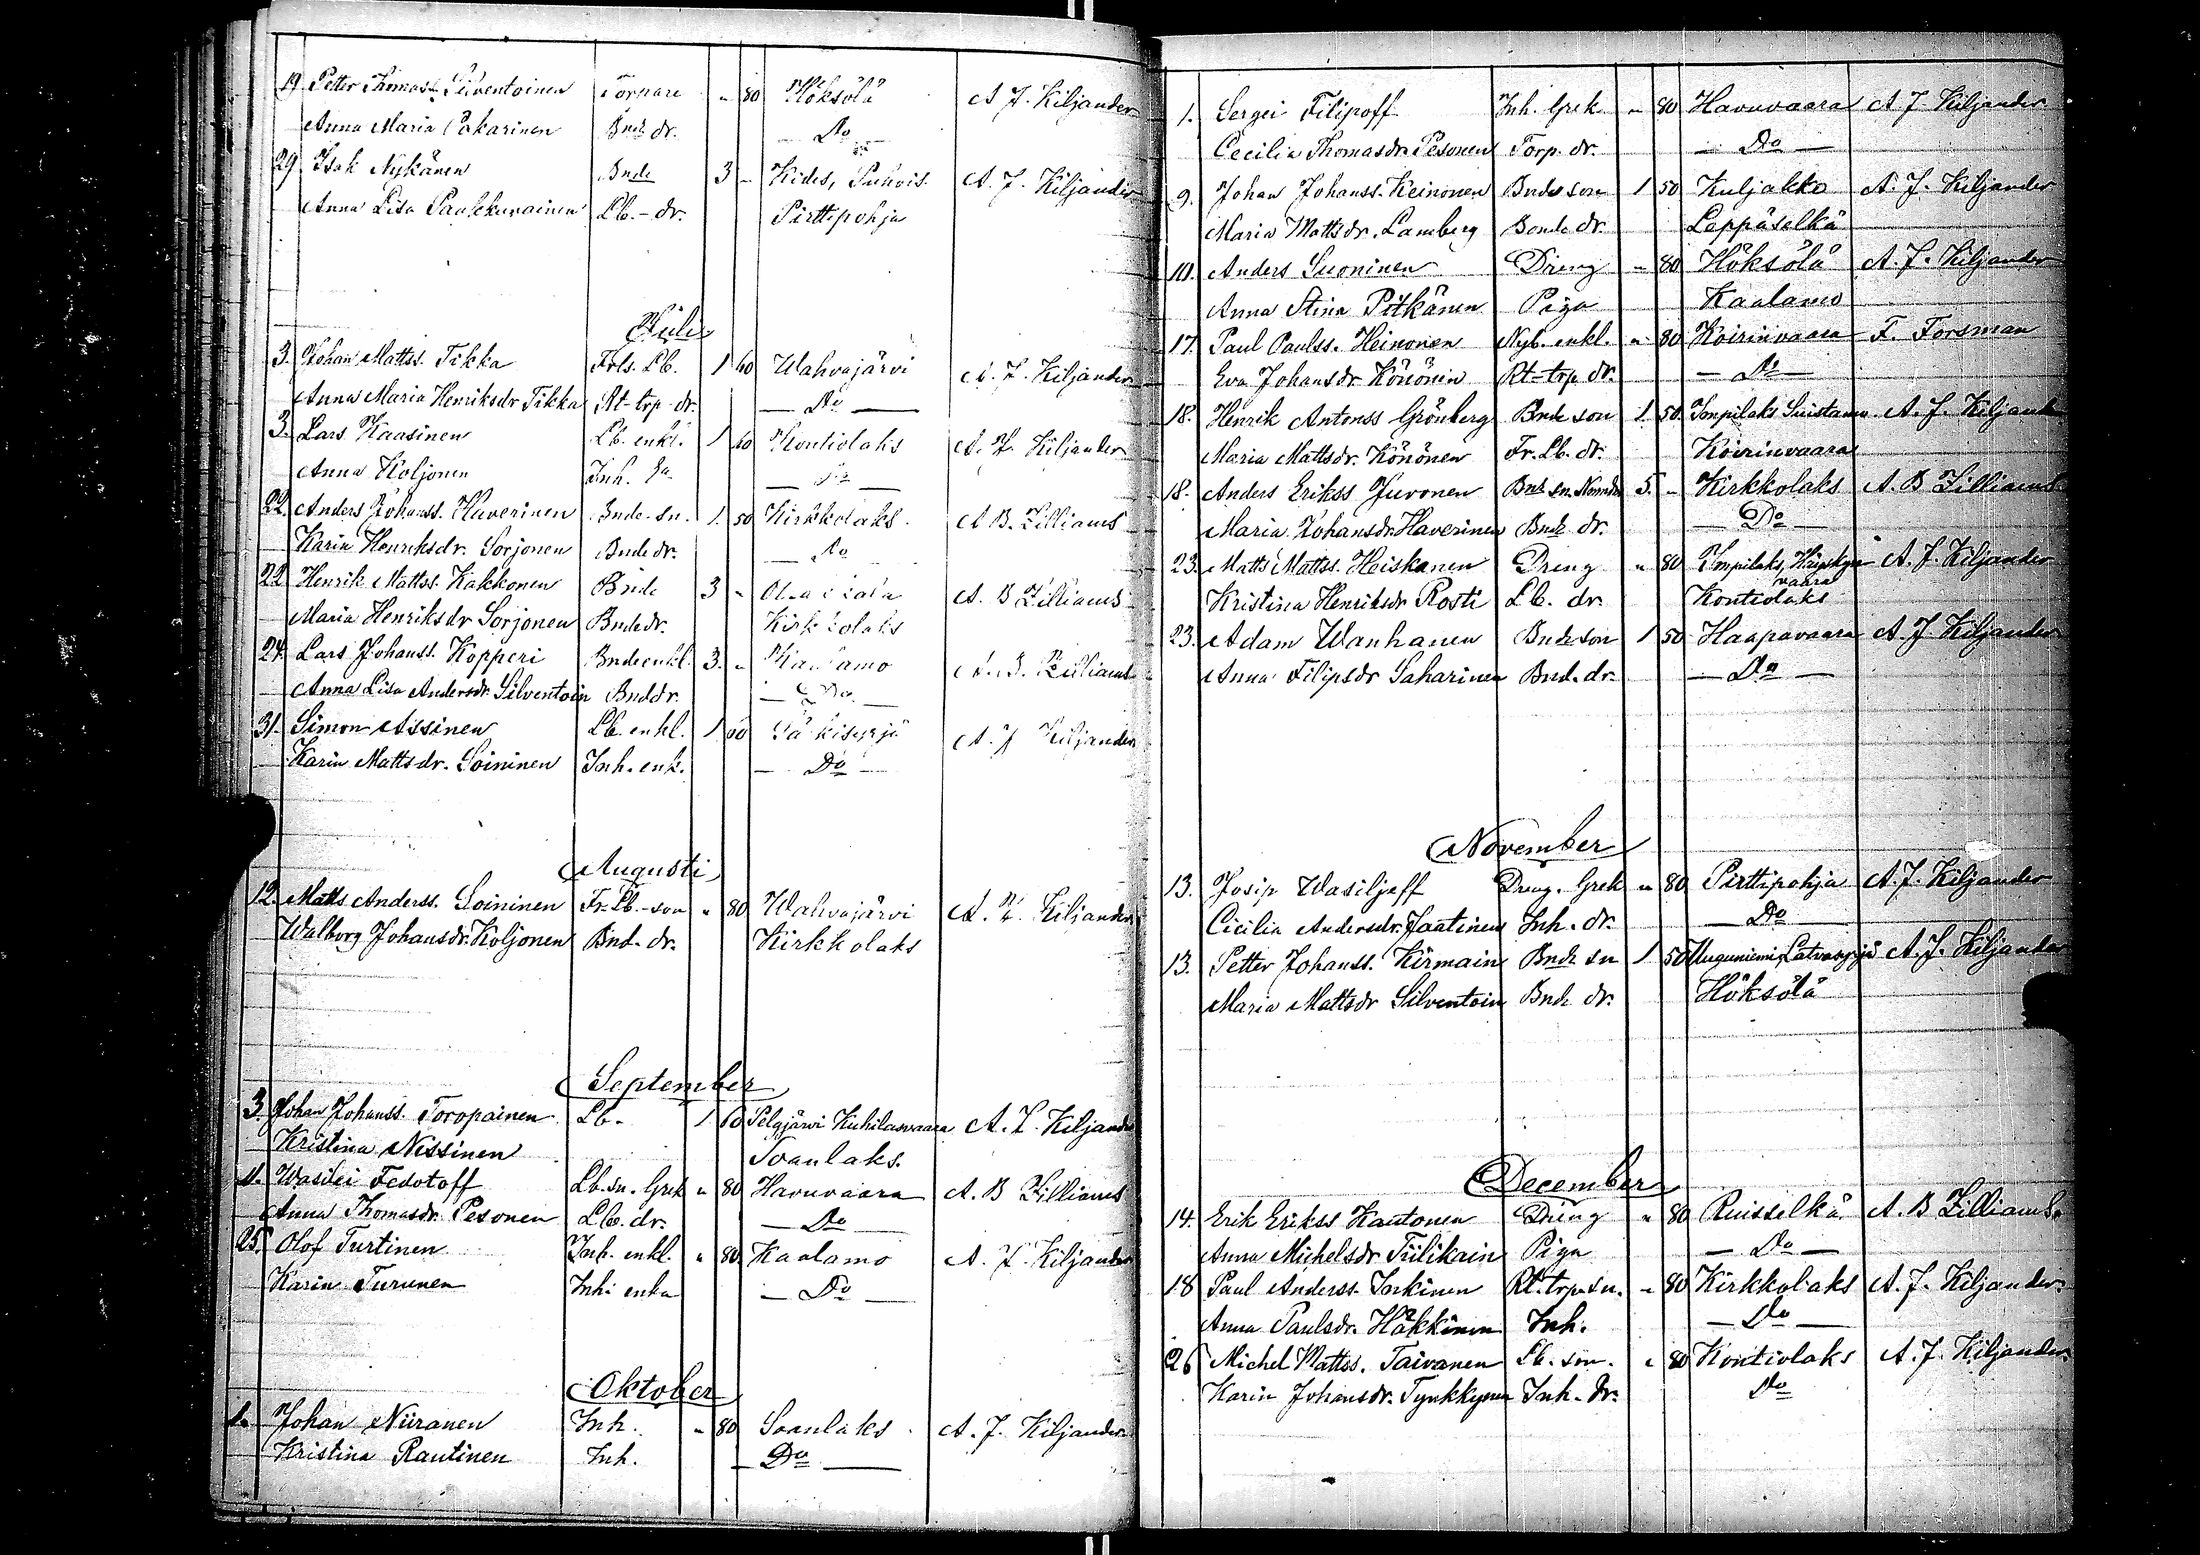 19 Petter Thomass. Silventoinen Torpare " 80 Höksölä A J. Kiljander
Anna Maria Pakarinen Bnd dr. Do
29 Isak Nykänen Bnde 3 - Kides, Puhois. A. J. Kiljander
Anna Lisa Paakkunainen Lb.-dr. Pirttipohja
Juli
3. Johan Mattss. Tikka Frls. Lb. 1 60 Wahvajärvi A. J. Kiljander
Anna Maria Henriksdr Tikka Rt-trp-dr. Do
3. Lars Kaasinen Lb. enkl. 1 60 Kontiolaks A. J. Kiljander
Anna Koljonen Inh. Do
22. Anders Johanss. Haverinen Bnde. sn. 1. 50 Kirkkolaks. A B. Lilliams
Karin Henriksdr. Sorjonen Bnde dr. Do
22 Henrik Mattss. Kakkonen Bnde 3 - A. B Lilliams
Maria Henriksdr Sorjonen Bnde dr. Kirkkolaks
24. Lars Johanss. Kopperi Bnde enkl. 3. - Kaalamo A. B. Lilliams
Anna Lisa Andersdr. Silventoin Bnd dr. Do
31. Simon Assinen Lb. enkl. 1 60 A. J Kiljander
Karin Mattsdr. Soininen Inh. enk. Do
Augusti
12. Matts Anderss. Soininen Fr. Lb.-son " 80 Wahvajärvi A. J. Kiljander
Walborg Johansdr. Koljonen Bnd. dr. Kirkkolaks
September
3. Johan Johanss. Toropainen Lb. 1 60 Pelgjärvi Kuhilasvaara A. J. Kiljander
Kristina Nissinen Soanlaks.
11. Wasilei Fedotoff Lb. sn. Grek " 80 Havuvaara A. B Lilliams
Anna Thomasdr. Pesonen Lb. dr. Do
25. Olof Turtinen Inh. enkl. " 80 Kaalamo A. J. Kiljander
Karin Turunen Inh. enka Do
Oktober
1. Johan Niiranen Inh. " 80 Soanlaks. A. J. Kiljander
Kristina Rautinen Inh. Do
1. Sergei Filipoff Inh. Grek " 80 Havuvaara A J. Kiljander
Cecilia Thomasdr. Pesonen Torp. dr. Do
9. Johan Johanss. Keinonen Bndes son 1 50 Kuljakko A. J. Kiljander
Maria Mattsdr. Lamberg Bonde dr. Leppäselkä
10. Anders Suoninen Dreng " 80 Höksölä A. J. Kiljander
Anna Stina Pitkänen Piga Kaalamo
17. Paul Paulss. Heinonen Nyb. enkl. " 80 Koirinvaara F. Forsman
Eva Johansdr. Könönen Rt-trp dr. Do
18. Henrik Antonss Grönberg Bnde son 1 50 Impilaks Suistamo A. J. Kiljander
Maria Mattsdr. Könönen Fr. Lb. dr. Koirinvaara
18. Anders Erikss Juvonen Bnde sn. 5. - Kirkkolaks A. B Lilliams
Maria Johansdr. Haverinen Bnde dr. Do
23. Matts Mattss. Heiskanen Dreng " 80 Impilaks, A. J. Kiljander
vaara
Kristina Henriksdr Rosti Lb. dr. Kontiolaks
23. Adam Wanhanen Bnde son 1 50 Haapavaara A. J Kiljander
Anna Filipsdr Saharinen Bnd. dr. Do
November
13. Josip Wasiljeff Dreng. Grek " 80 Pirttipohja A. J. Kiljander
Cicilia Andersdr. Jaatinen Inh. dr. Do
13. Petter Johanss. Kirmain Bnde sn 1 50 Uuguniemi, Latvasyrjä A. J. Kiljander
Maria Mattsdr Silventoin Bnde dr. Höksölä
December
14. Erik Erikss Kautonen Dreng " 80 Ruisselkä A. B Lilliams.
Anna Michelsdr Tiilikain Piga Do
18 Paul Anderss. Inkinen Rt. trp. sn. " 80 Kirkkolaks A. J. Kiljander.
Anna Paulsdr. Häkkinen Inh. Do
26 Michel Mattss. Taivanen Lb. son. " 80 Kontiolaks A. J. Kiljander.
Karin Johansdr. Tynkkynen Inh. dr. Do